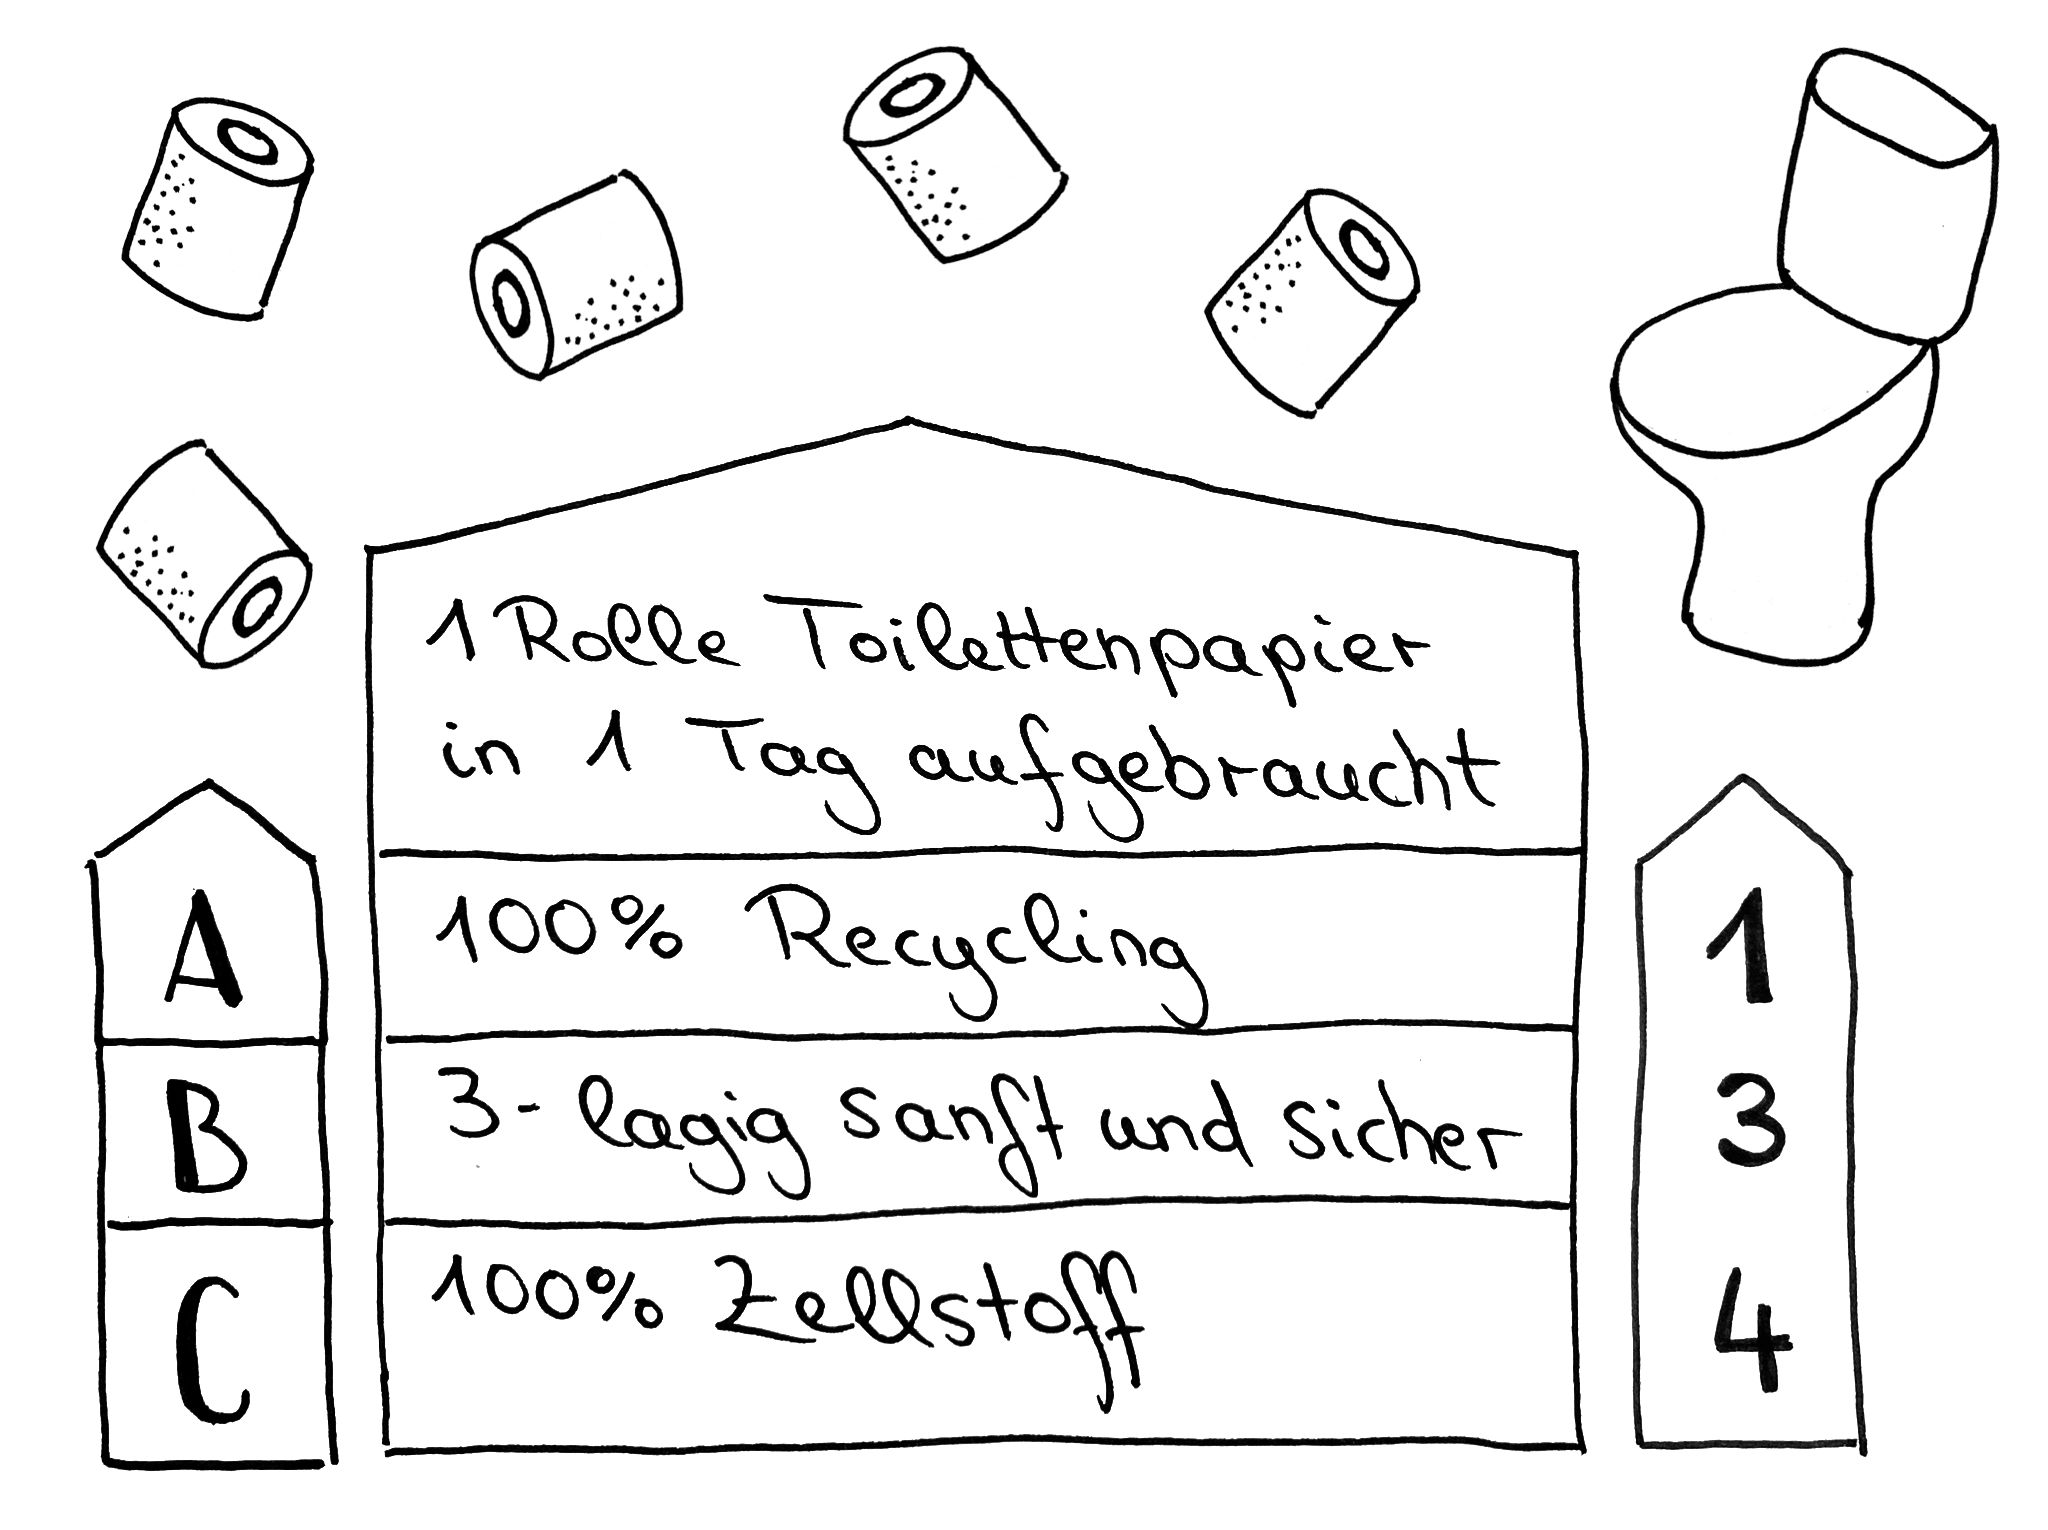 1 Rolle Toilettenpapier
in 1 Tag aufgebraucht
A
100% Recycling
1
B
3-lagig sanft und sicher
3
C
100% Zellstoff
4